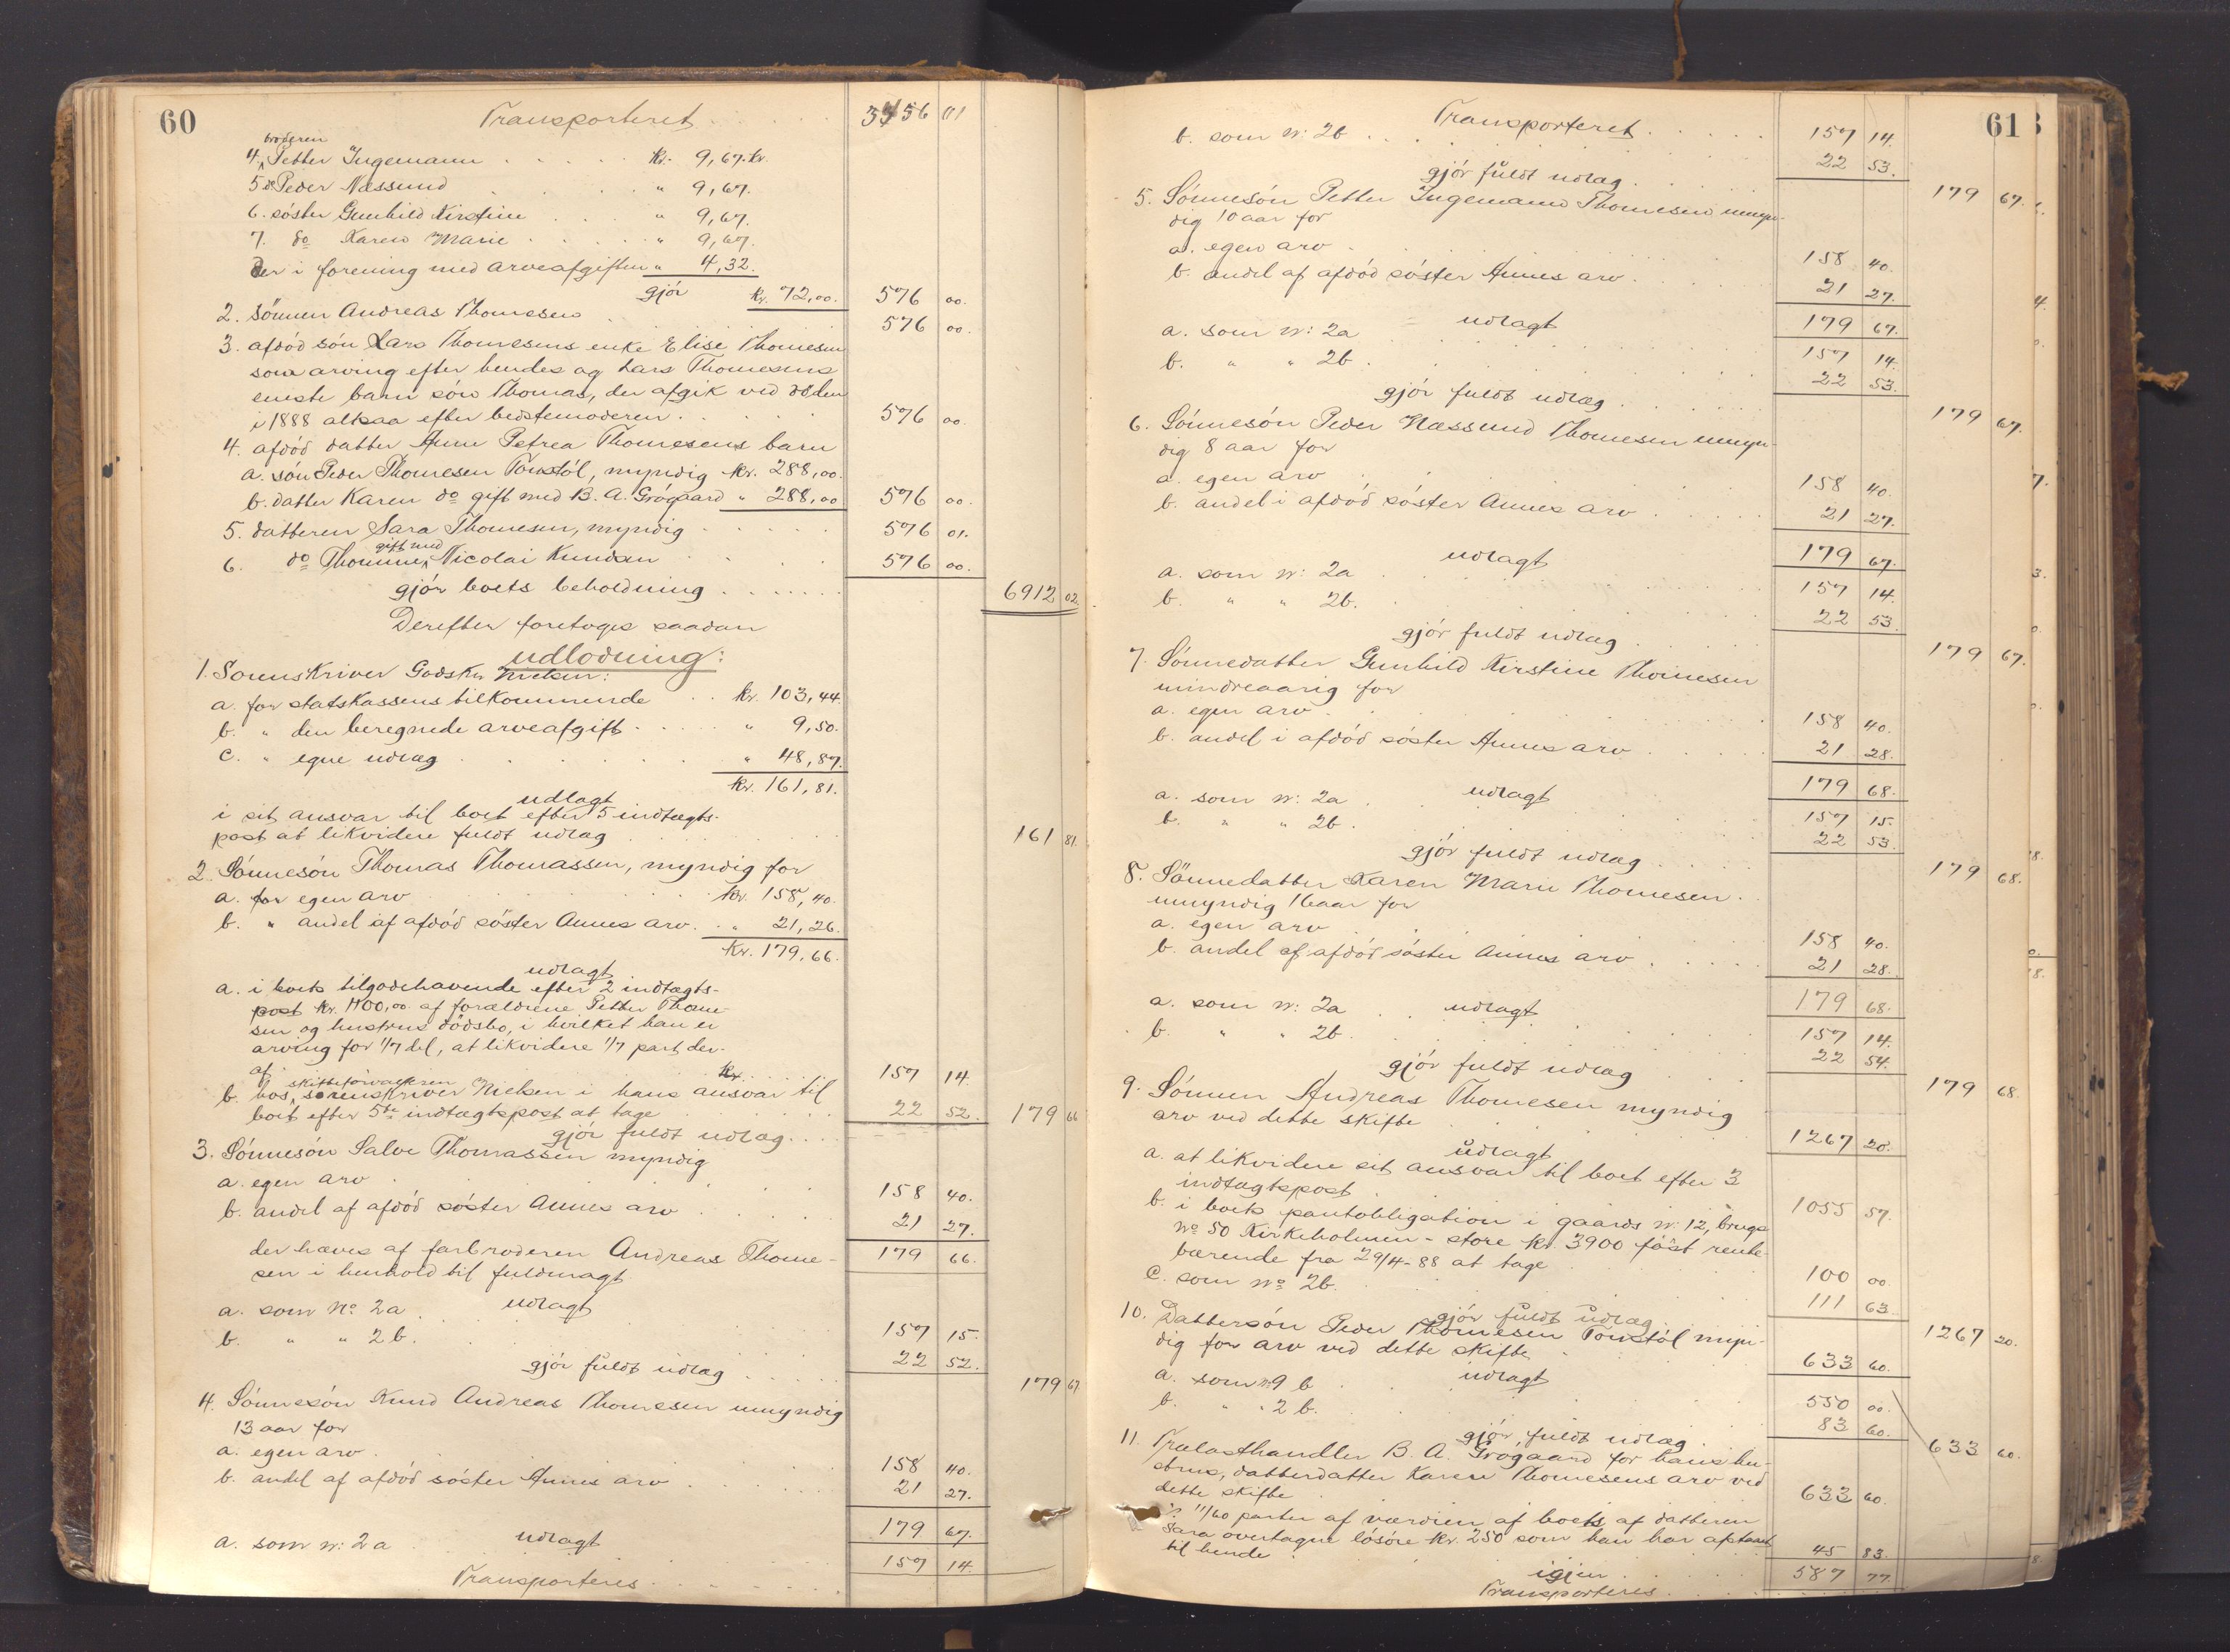 60
Transporteret . . . . . 3456 01
broderen
4. Petter Ingemann . . . . . kr. 9,67. kr.
5 do Peder Næssund . . . . . " 9,67.
6. söster Gunhild Kirstine . . . " 9,67.
7. do Karen Marie . . . . . " 9,67.
der i forening med arveafgiften " 4,32.
gjör kr. 72,00. 576 00.
2. sönnen Andreas Thomesen . . . . . 576 00.
3. afdöd sön Lars Thomesens enke Elise Thomesen
som arving efter hendes og Lars Thomesens
eneste barn sön Thomas, der afgik ved döden
i 1888 altsaa efter bedstemoderen . . . . . 576 00.
4. afdöd datter Anne Petrea Thomesens barn
a. sön Peder Thomesen Tonstöl, myndig kr. 288,00.
b. datter Karen do gift med B. A. Grögaard " 288,00 576 00.
5. datteren Sara Thomesen, myndig . . . . . 576 01.
gift med
6. do Thomine Nicolai Knudsen . . . . 576 00.
gjör boets beholdning . . . . . . . 6912 02.
Derefter foretoges saadan
udlodning:
1. Sorenskriver Godske Nielsen:
a. for statskassens tilkommende . . kr. 103,44.
b. " den beregnede arveafgift . . . . . " 9,50.
c. " egne udlæg . . . . . . " 48,87.
kr. 161,81.
udlagt
i sit ansvar til boet efter 5 indtægts-
post at likvidere fuldt udlæg . . . . . 161 81.
2. Sönnesön Thomas Thomassen, myndig for
a. for egen arv . . . . . kr. 158,40.
b. " andel af afdöd söster Annes arv. . " 21,26.
Kr. 179,66.
udlagt
a. i boets tilgodehavende efter 2 indtægts-
post kr. 1100,00 af forældrene Petter Thome-
sen og hustrus dödsbo, i hvilket han er
arving for 1/7 del, at likvidere 1/7 part der-
af . . . . . kr. . . . 157 14.
skifteforvalteren
b. hos sorenskriver Nielsen i hans ansvar til
boet efter 5te indtægtspost at tage . . . . . 22 52. 179 66
gjör fuldt udlæg . . . .
3. Sönnesön Salve Thomassen myndig
a. egen arv . . . . . 158 40.
b. andel af afdöd söster Annes arv . . . . 21 27.
der hæves af farbroderen Andreas Thome- 179 66.
sen i henhold til fuldmagt
udlagt
a. som No 2a . . . . . 157 15.
b. " " 2b. . . . . . 22 52.
gjör fuldt udlæg . . . . . 179 67
4. Sönnesön Knud Andreas Thomesen umyndig
13 aar for
a. egen arv . . . . . 158 40.
b. andel af afdöd söster Annes arv . . . . . 21 27.
179 67.
udlagt
a. som No 2a . . . . . 157 14.
Transporteres . . . . . .
61
Transporteret . . . . . 157 14.
b. som No 2b . . . . . 22 53.
gjör fuldt udlæg . . . . 179 67.
5. Sönnesön Petter Ingemann Thomesen umyn-
dig 10 aar for
a. egen arv . . . . . 158 40.
b. andel af afdöd söster Annes arv . . . . . 21 27.
udlagt 179 67.
a. som No 2a . . . . . 157 14.
b. " " 2b . . . . . 22 53.
gjör fuldt udlæg . . . . . 179 67.
6. Sönnesön Peder Næssund Thomesen umyn-
dig 8 aar for
a. egen arv . . . . . 158 40.
b. andel i afdöd söster Annes arv . . . . . 21 27.
udlagt 179 67.
a. som No 2a . . . . . 157 14.
b. " " 2b. . . . . . 22 53.
gjör fuldt udlæg . . . . . 179 67.
7. Sönnedatter Gunhild Kirstine Thomesen
mindreaarig for
a. egen arv . . . . . 158 40.
b. andel i afdöd söster Annes arv . . . . . 21 28.
udlagt 179 68.
a. som No 2a . . . . . 157 15.
b. " " 2b . . . . . 22 53.
gjör fuldt udlæg . . . . . 179 68.
8. Sönnedatter Karen Marie Thomesen.
umyndig 16 aar for
a. egen arv . . . . . 158 40.
b. andel af afdöd söster Annes arv . . . . . 21 28.
179 68.
a. som No 2a . . udlagt . . . 157 14.
b. " " 2b . . . . . 22 54.
gjör fuldt udlæg . . . . . 179 68.
9. Sönnen Andreas Thomesen myndig
arv ved dette skifte . . . . . 1267 20.
udlagt
a. at likvidere sit ansvar til boet efter 3
indtægtspost . . . . . 1055 57.
b. i boets pantobligation i gaards No 12, brugs
No 50 Kirkeholmen - store kr. 3900 först rente-
bærende fra 29/4-88 at tage . . . . . 100 00.
c. som No 2b. . . . . . 111 63.
gjör fuldt udlæg . . . . . 1267 20.
10. Dattersön Peder Thomesen Tonstöl myn-
dig for arv ved dette skifte . . . . . 633 60.
udlagt
a. som No 9 b . . . . . 550 00.
b. " " 2 b. . . . . . 83 60.
gjör fuldt udlæg . . . . . 633 60.
11. Trælasthandler B. A. Grögaard for hans hu-
strus, datterdatter Karen Thomesens arv ved
dette skifte . . . . . 633 60.
÷ 11/60 parter af værdien af boets af datteren
Sara overtagne lösöre kr. 250 som han har aftaaet
til hende . . . . . 45 83.
igjen . . . . . 587 77.
Transporteres . . . . .